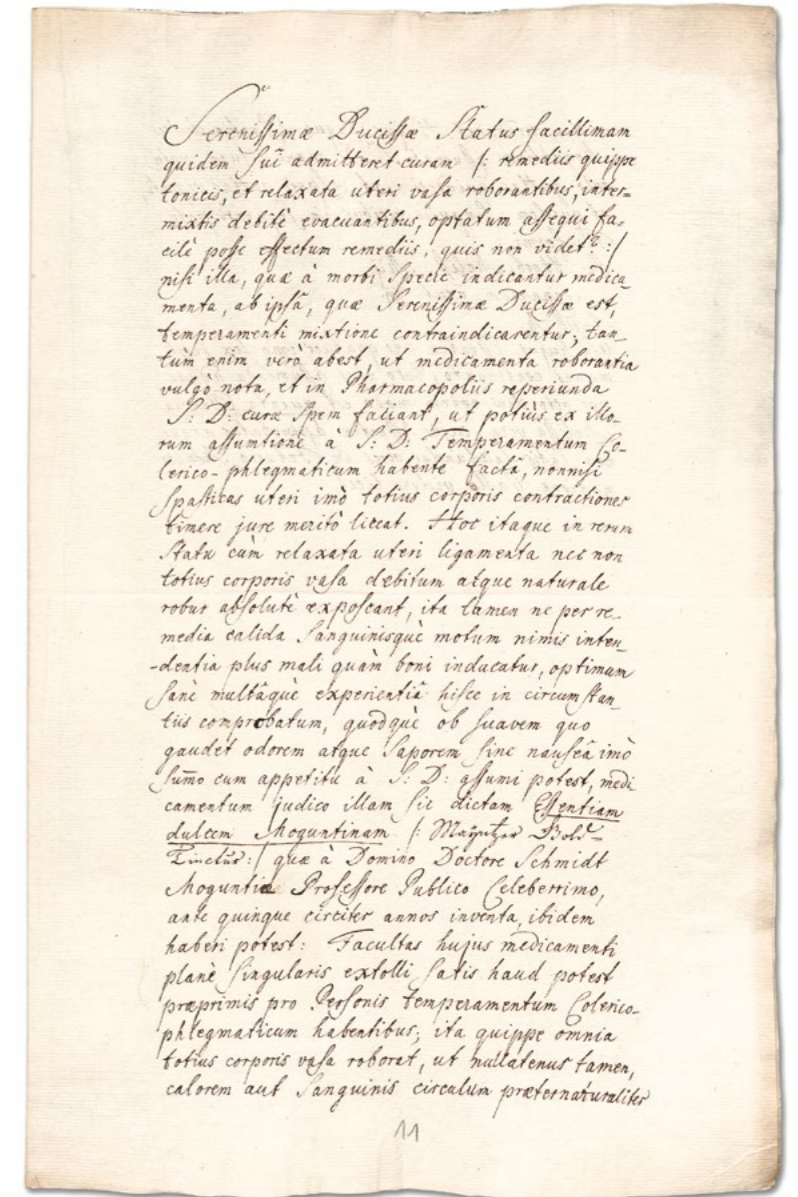 Serenissimæ Ducissæ Status facillimam
quidem sui admitteret curam /: remediis quippe
tonicis, et relaxata uteri vasa roborantibus, inter=
mixtis debitè evacuantibus, optatum assequi fa-
cilè posse effectum remediis, quis non videt? :/
nisi illa, quæ à morbi specie indicantur medica
menta, ab ipsâ, quæ Serenissimæ Ducissæ est,
temperamenti mixtione contraindicarentur; tan_
tùm enim verò abest, ut medicamenta roborantia
vulgò nota, et in Pharmacopoliis reperiunda
S: D: curæ spem faciant, ut potiùs ex illo-
rum assumtione à S: D: Temperamentum Co-
lerico-phlegmaticum habente factâ, nonnisi
spasticas uteri imò totius corporis contractiones
timere jure meritò liceat. Hoc itaque in rerum
statu cùm relaxata uteri ligamenta nec non
totius corporis vasa debitum atque naturale
robur absolutè exposcant, ita tamen ne per re_
media calida Sanguinisquè motum nimis inten_
-dentia plus mali quàm boni inducatur, optimum
sanè multâquè experientiâ hisce in circumstan_
tiis comprobatum, quodquè ob suavem quo
gaudet odorem atque saporem sine nauseâ imò
sum̄o cum appetitu à S: D: assumi potest, medi
camentum judico illam sic dictam Essentiam
dulcem Moguntinam /: Mayntzer Gold-
Tinctur :/ quæ à Domino Doctore Schmidt
Moguntiæ Professore Publico Celeberrimo,
ante quinque circiter annos inventa, ibidem
haberi potest: Facultas hujus medicamenti
planè singularis extolli satis haud potest
præprimis pro Personis temperamentum Colerico-
phlegmaticum habentibus; ita quippe omnia
totius corporis vasa roborat, ut nullatenus tamen,
calorem aut Sanguinis circulum præternaturaliter
11